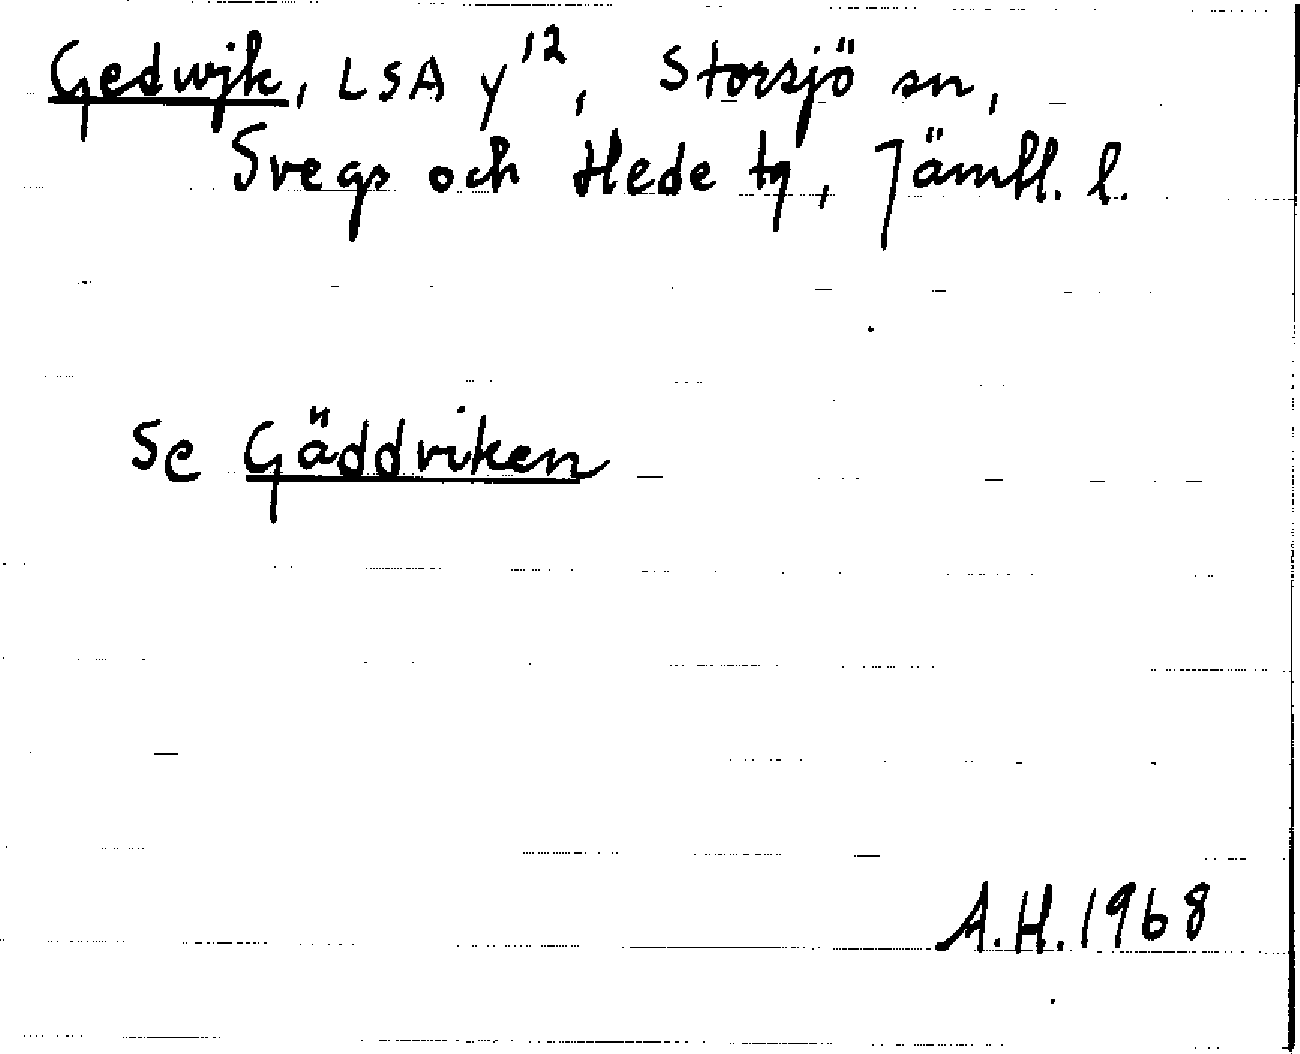 Gedwjk, LSA y¹², Storsjö sn,
Svegs och Hede tg, Jämtl. l.
Se Gäddviken
A.H. 1968